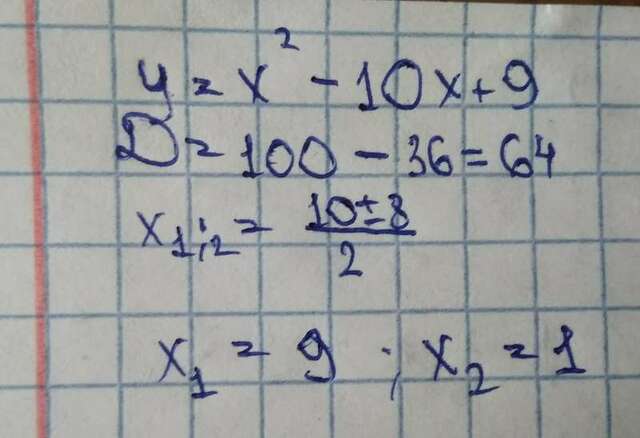 y = x² - 10x + 9
D = 100 - 36 = 64
x₁;₂ = (10 ± 8)/2
x₁ = 9 ; x₂ = 1